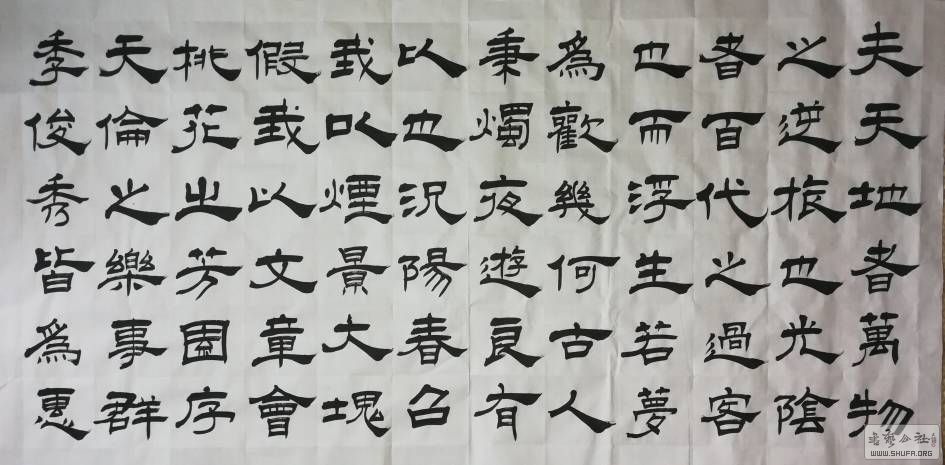 夫天地者萬物
之逆旅也光陰
者百代之過客
也而浮生若夢
為歡幾何古人
秉燭夜遊良有
以也況陽春召
我以煙景大塊
假我以文章會
桃花之芳園序
天倫之樂事群
季俊秀皆為惠
WWW.SHUFA.ORG